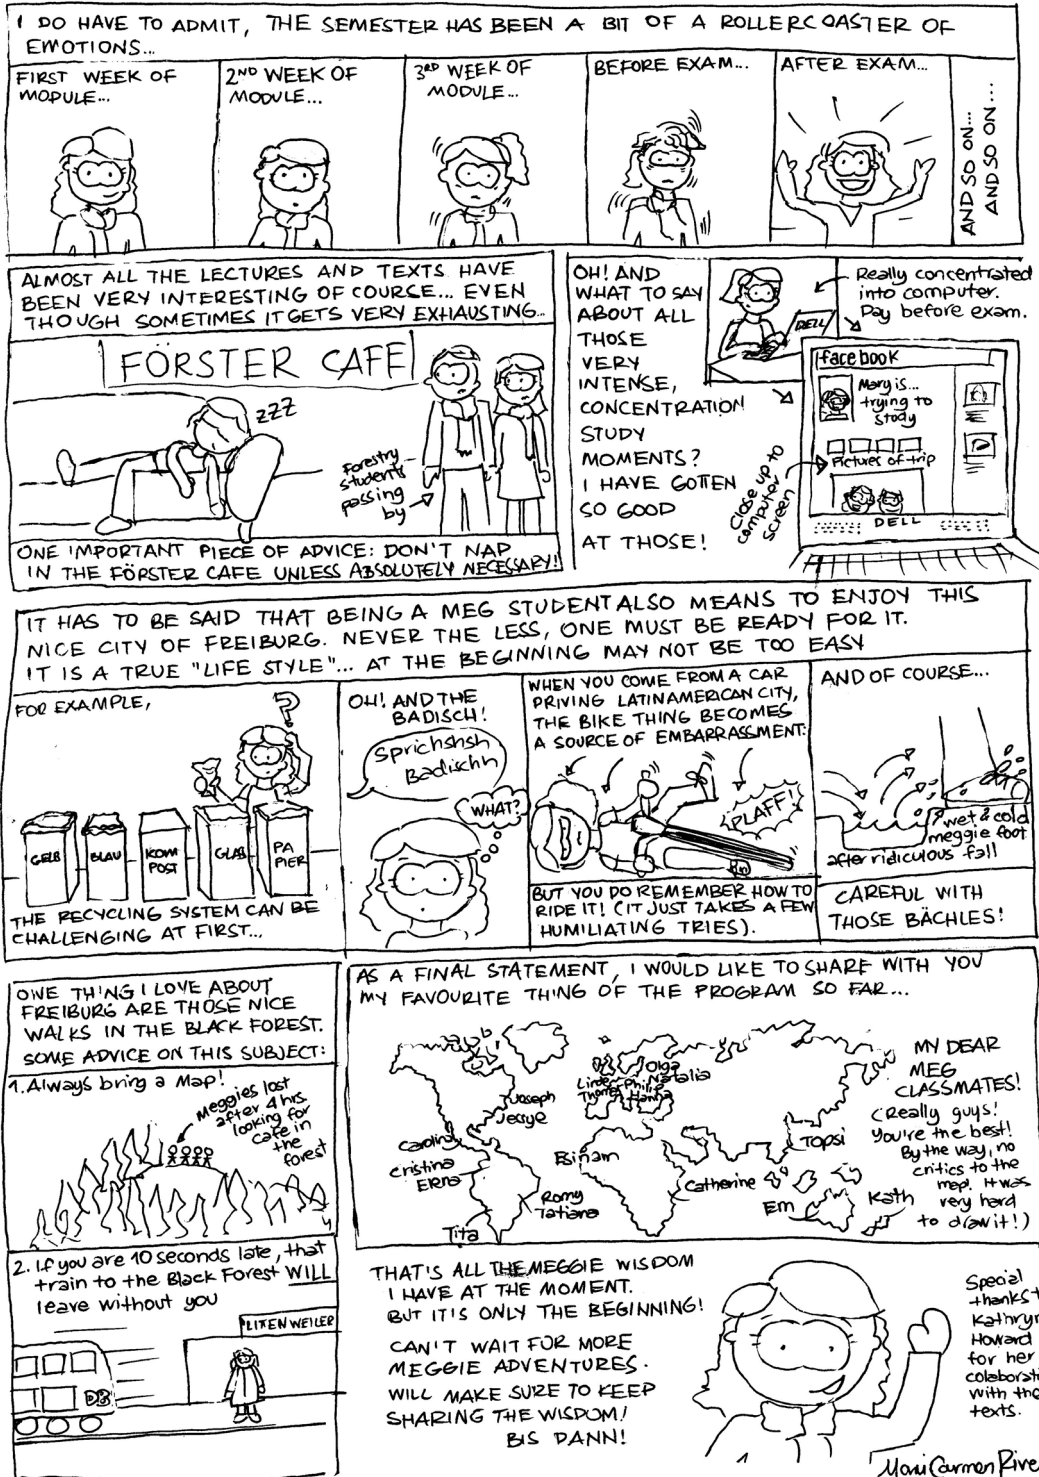 I DO HAVE TO ADMIT, THE SEMESTER HAS BEEN A BIT OF A ROLLERCOASTER OF
EMOTIONS...
FIRST WEEK OF
MODULE...
2ND WEEK OF
MODULE...
3RD WEEK OF
MODULE...
BEFORE EXAM...
AFTER EXAM...
AND SO ON...
AND SO ON...
ALMOST ALL THE LECTURES AND TEXTS HAVE
BEEN VERY INTERESTING OF COURSE... EVEN
THOUGH SOMETIMES IT GETS VERY EXHAUSTING...
FÖRSTER CAFE
ZZZ
Forestry
students
passing
by
ONE IMPORTANT PIECE OF ADVICE: DON'T NAP
IN THE FÖRSTER CAFE UNLESS ABSOLUTELY NECESSARY!
OH! AND
WHAT TO SAY
ABOUT ALL
THOSE
VERY
INTENSE,
CONCENTRATION
STUDY
MOMENTS?
I HAVE GOTTEN
SO GOOD
AT THOSE!
DELL
Really concentrated
into computer.
Day before exam.
facebook
Mary is...
trying to
study
Pictures of trip
DELL
Close up to
computer
screen
IT HAS TO BE SAID THAT BEING A MEG STUDENT ALSO MEANS TO ENJOY THIS
NICE CITY OF FREIBURG. NEVER THE LESS, ONE MUST BE READY FOR IT.
IT IS A TRUE "LIFE STYLE"... AT THE BEGINNING MAY NOT BE TOO EASY
FOR EXAMPLE,
?
GELB
BLAU
KOM
POST
GLAS
PA
PIER
THE RECYCLING SYSTEM CAN BE
CHALLENGING AT FIRST...
OH! AND THE
BADISCH!
Sprichshsh
Badischh
WHAT?
WHEN YOU COME FROM A CAR
DRIVING LATINAMERICAN CITY,
THE BIKE THING BECOMES
A SOURCE OF EMBARRASSMENT:
PLAFF!
BUT YOU DO REMEMBER HOW TO
RIDE IT! (IT JUST TAKES A FEW
HUMILIATING TRIES).
AND OF COURSE...
wet & cold
meggie foot
after ridiculous fall
CAREFUL WITH
THOSE BÄCHLES!
ONE THING I LOVE ABOUT
FREIBURG ARE THOSE NICE
WALKS IN THE BLACK FOREST.
SOME ADVICE ON THIS SUBJECT:
1. Always bring a Map!
Meggies lost
after 4 hrs
looking for
cafe in
the
forest
2. If you are 10 seconds late, that
train to the Black Forest WILL
leave without you
LITTENWEILER
DB
AS A FINAL STATEMENT, I WOULD LIKE TO SHARE WITH YOU
MY FAVOURITE THING OF THE PROGRAM SO FAR...
Joseph
Jessye
Carolina
Cristina
Elena
Romy
Tatiana
Tita
Olga
Natalia
Philip
Hanna
Thomas
Catherine
Topsi
Em
Kath
MY DEAR
MEG
CLASSMATES!
(Really guys!
You're the best!
By the way, no
critics to the
map. It was
very hard
to draw it!)
THAT'S ALL THE MEGGIE WISDOM
I HAVE AT THE MOMENT.
BUT IT IS ONLY THE BEGINNING!
CAN'T WAIT FOR MORE
MEGGIE ADVENTURES.
WILL MAKE SURE TO KEEP
SHARING THE WISDOM!
BIS DANN!
Special
thanks
Kathryn
Howard
for her
with the
texts.
Mari Carmen